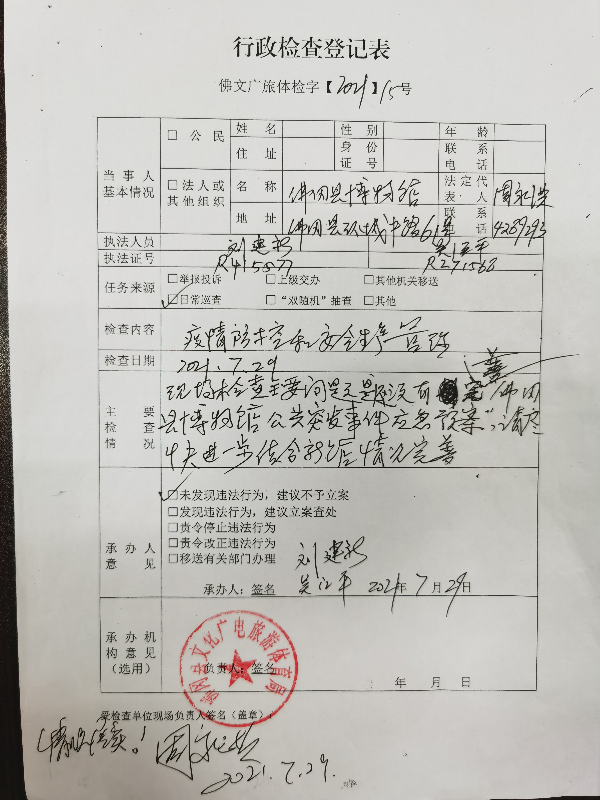 行政检查登记表
佛文广旅体检字【2021】15号
当事人基本情况
□公民 姓名 性别 年龄
住址 身份证号 联系电话
□法人或其他组织 名称 佛冈县博物馆 法定代表人
地址 佛冈县环城中路61号 联系电话 4289293
执法人员 刘建新
执法证号
任务来源 □举报投诉 □上级交办 □其他机关移送
☑日常巡查 □“双随机”抽查 □其他
检查内容 疫情防控和安全生产
检查日期 2021.7.29
主要检查情况 现场检查主要问题是须有完善佛冈
县博物馆公共突发事件应急预案”,请尽
快进一步结合新馆情况完善
承办人意见
☑未发现违法行为，建议不予立案
□发现违法行为，建议立案查处
□责令停止违法行为
□责令改正违法行为
□移送有关部门办理 刘建新
承办人：签名 2021年7月29日
承办机构意见（选用）
负责人：签名
年 月 日
佛冈县文化广电旅游体育局
受检查单位现场负责人签名（盖章）：
情况属实。!
2021.7.29.